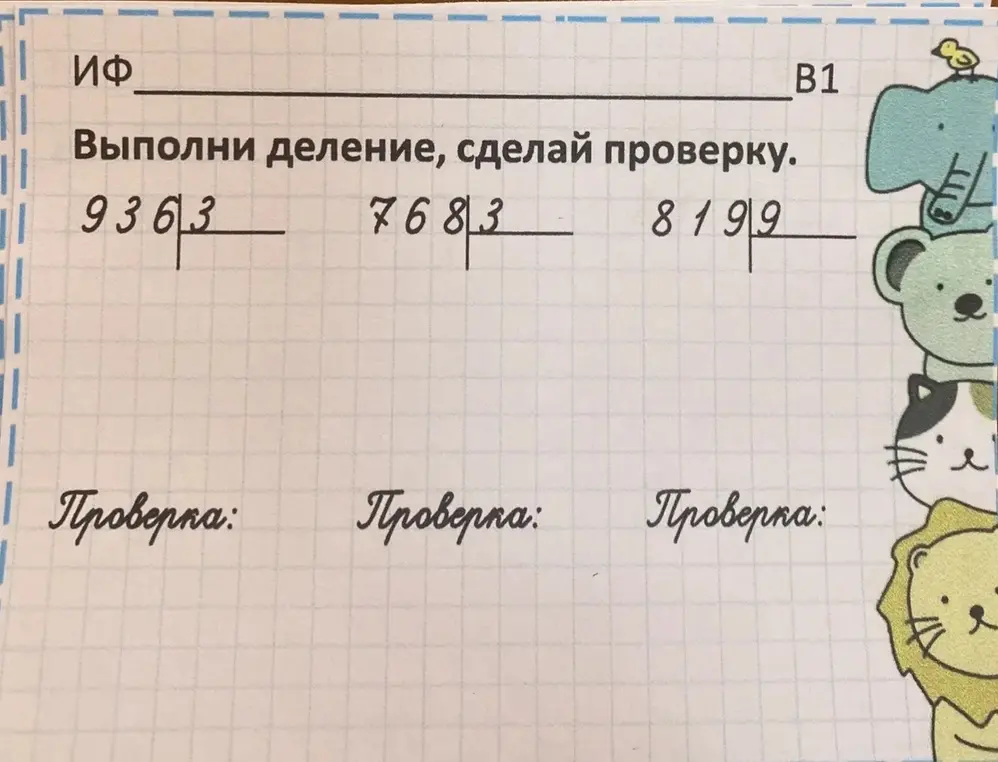 ИФ____________________В1
Выполни деление, сделай проверку.
936 3 768 3 819 9
Проверка: Проверка: Проверка: